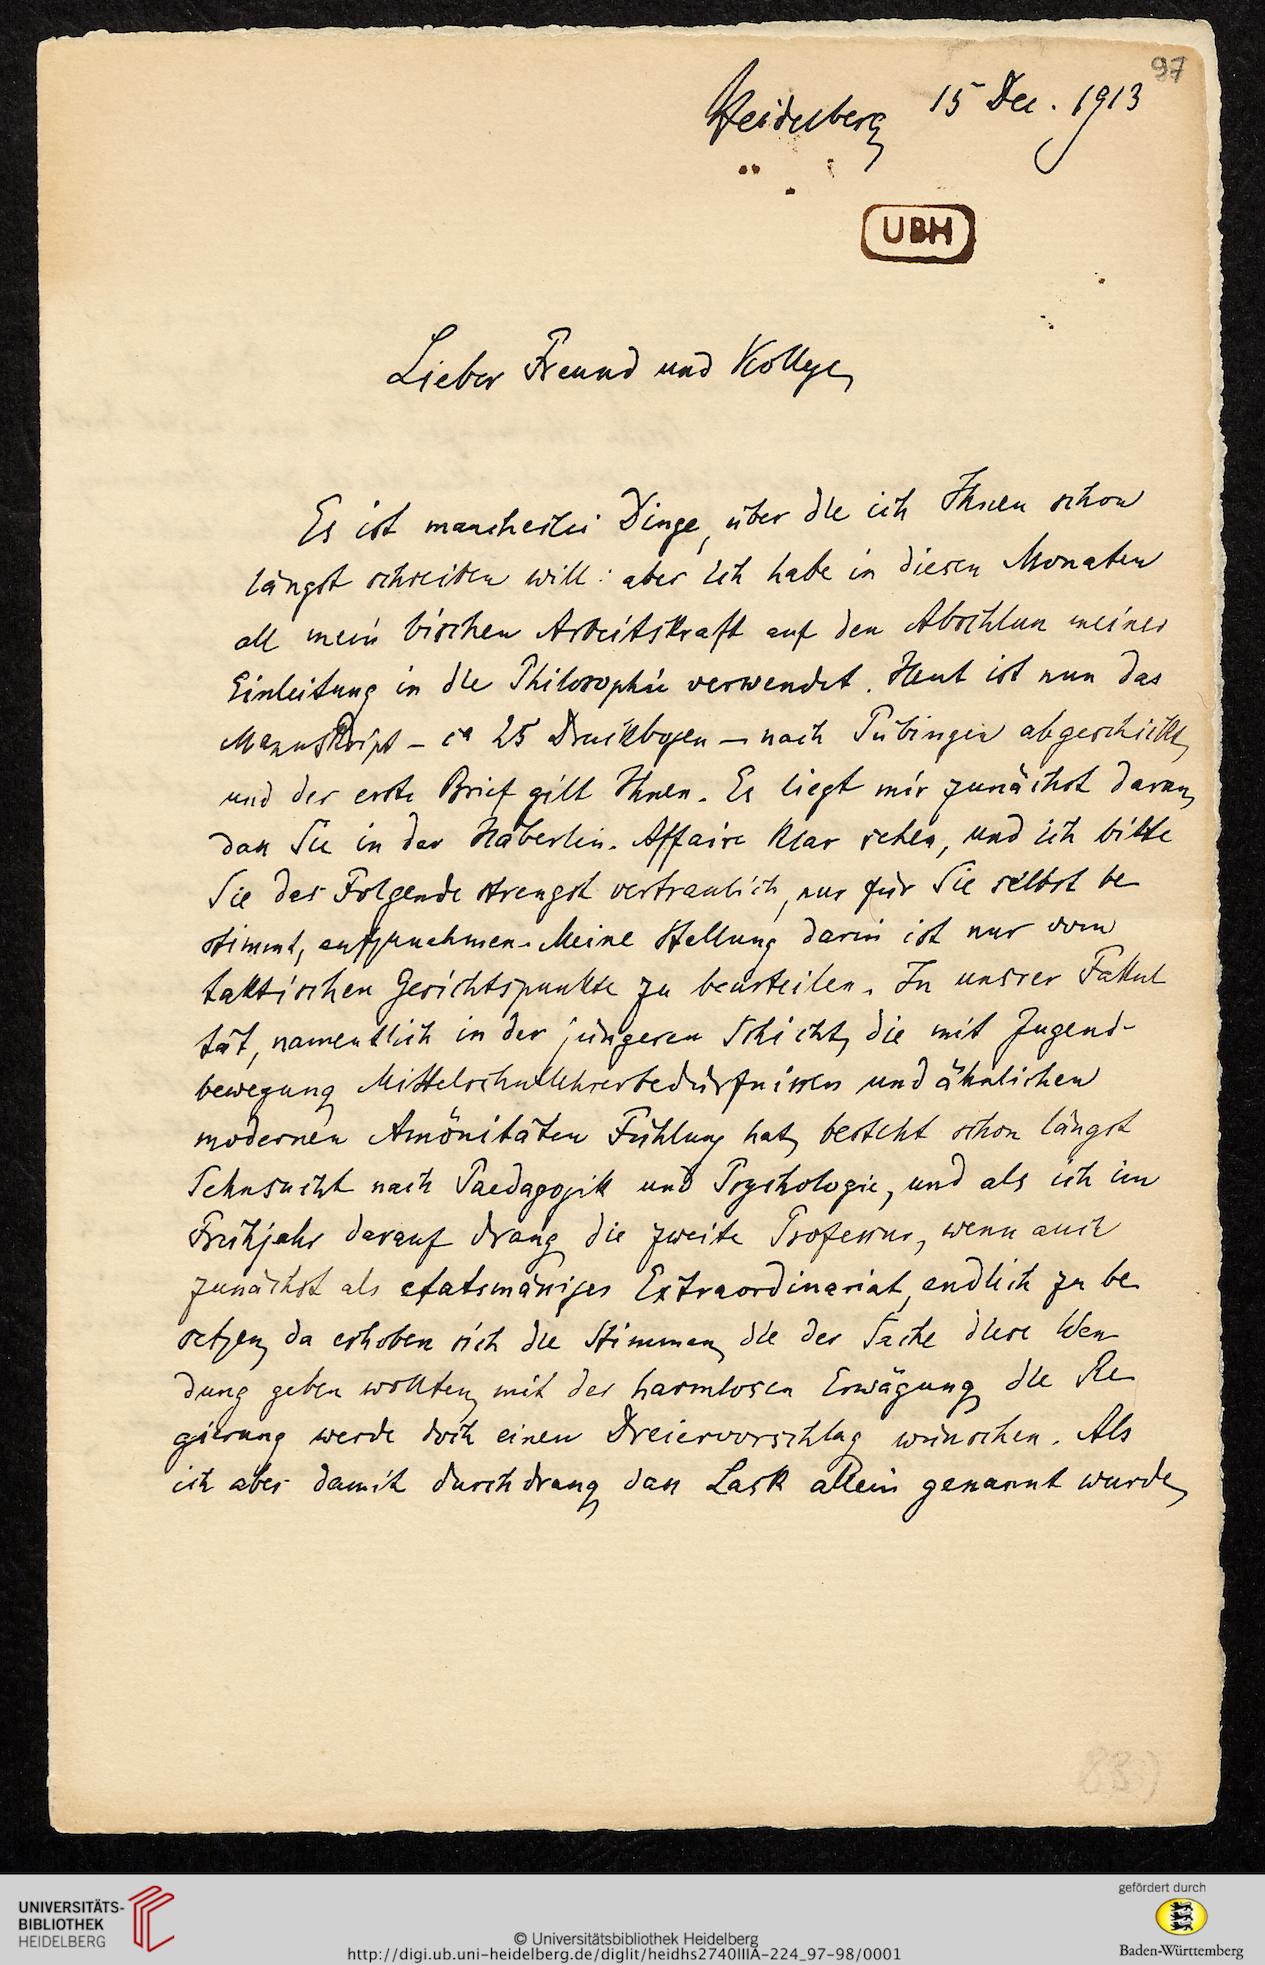 97
Heidelberg 15 Dec. 1913
UBH
Lieber Freund und Kollege,
Es ist mancherlei Dinge, über die ich Ihnen schon
längst schreiben will: aber ich habe in diesen Monaten
all mein bischen Arbeitskraft auf den Abschluss meiner
Einleitung in die Philosophie verwendet. Heut ist nun das
Manuskript – ca 25 Druckbogen – nach Tübingen abgeschickt,
und der erste Brief gilt Ihnen. Es liegt mir zunächst daran,
dass Sie in der Häberlin-Affaire klar sehen, und ich bitte
Sie das Folgende strengst vertraulich, nur für Sie selbst be
stimmt, aufzunehmen. Meine Stellung darin ist nur vom
taktischen Gesichtspunkte zu beurteilen. In unsrer Fakul
tät, namentlich in der jüngeren Schicht, die mit Jugend-
bewegung Mittelschullehrerbedürfnissen und ähnlichen
modernen Amönitäten Fühlung hat, besteht schon längst
Sehnsucht nach Paedagogik und Psychologie, und als ich im
Frühjahr darauf drang, die zweite Professur, wenn auch
zunächst als etatsmässiges Extraordinariat, endlich zu be
setzen, da erhoben sich die Stimmen, die der Sache diese Wen
dung geben wollten, mit der harmlosen Erwägung, die Re
gierung werde doch einen Dreiervorschlag wünschen. Als
ich aber damit durchdrang, dass Lask allein genannt wurde,
83)
UNIVERSITÄTS-
BIBLIOTHEK
HEIDELBERG
© Universitätsbibliothek Heidelberg
http://digi.ub.uni-heidelberg.de/diglit/heidhs2740IIIA-224_97-98/0001
gefördert durch
Baden-Württemberg